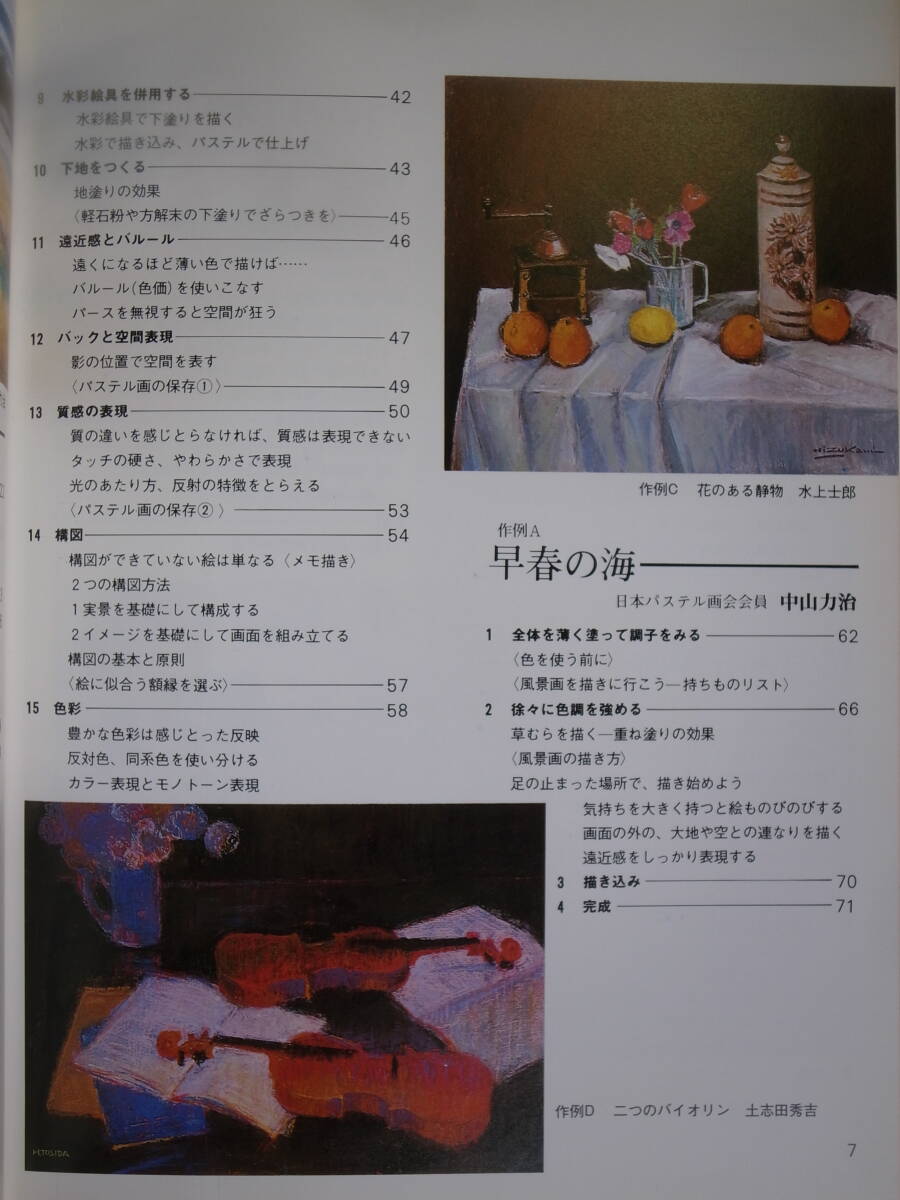 9 水彩絵具を併用する 42
水彩絵具で下塗りを描く
水彩で描き込み、パステルで仕上げ
10 下地をつくる 43
地塗りの効果
〈軽石粉や方解末の下塗りでざらつきを〉 45
11 遠近感とバルール 46
遠くになるほど薄い色で描けば……
バルール(色価)を使いこなす
パースを無視すると空間が狂う
12 バックと空間表現 47
影の位置で空間を表す
〈パステル画の保存①〉 49
13 質感の表現 50
質の違いを感じとらなければ、質感は表現できない
タッチの硬さ、やわらかさで表現
光のあたり方、反射の特徴をとらえる
〈パステル画の保存②〉 53
14 構図 54
構図ができていない絵は単なる〈メモ描き〉
2つの構図方法
1実景を基礎にして構成する
2イメージを基礎にして画面を組み立てる
構図の基本と原則
〈絵に似合う額縁を選ぶ〉 57
15 色彩 58
豊かな色彩は感じとった反映
反対色、同系色を使い分ける
カラー表現とモノトーン表現
MIZUKAMI
作例C 花のある静物 水上士郎
作例A
早春の海
日本パステル画会会員 中山力治
1 全体を薄く塗って調子をみる 62
〈色を使う前に〉
〈風景画を描きに行こう―持ちものリスト〉
2 徐々に色調を強める 66
草むらを描く―重ね塗りの効果
〈風景画の描き方〉
足の止まった場所で、描き始めよう
気持ちを大きく持つと絵ものびのびする
画面の外の、大地や空との連なりを描く
遠近感をしっかり表現する
3 描き込み 70
4 完成 71
H.TOSIDA
作例D 二つのバイオリン 土志田秀吉
7